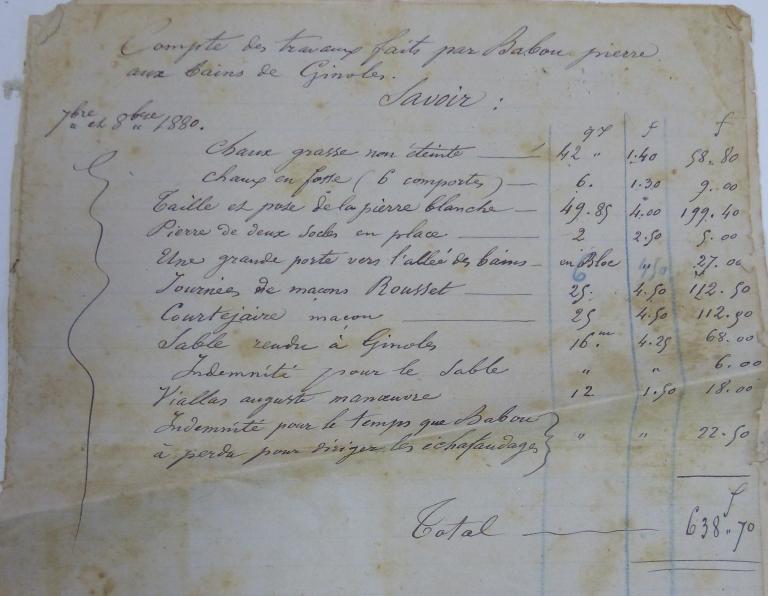 Compte des travaux faits par Babou pierre
aux bains de Ginoles.
Savoir :
7bre et 8bre 1880.
qx f f
Chaux grasse non éteinte — 42 " 1.40 58.80
Chaux en fosse (6 comportes) — 6. 1.30 9.00
Taille et pose de la pierre blanche — 49.85 4.00 199.40
Pierre de deux socles en place — 2 2.50 5.00
Une grande porte vers l'allée des bains — en Bloc 27.00
Journées de maçons Rousset — 25. 4.50 112.50
Courtéjaire maçon — 25 4.50 112.50
Sable rendu à Ginoles 16.m 4.25 68.00
Indemnité pour le sable " " 6.00
Viallas auguste manœuvre 12 1.50 18.00
Indemnité pour le temps que Babou
à perdu pour diriger les échafaudages } " " 22.50
f
Total — 638.70